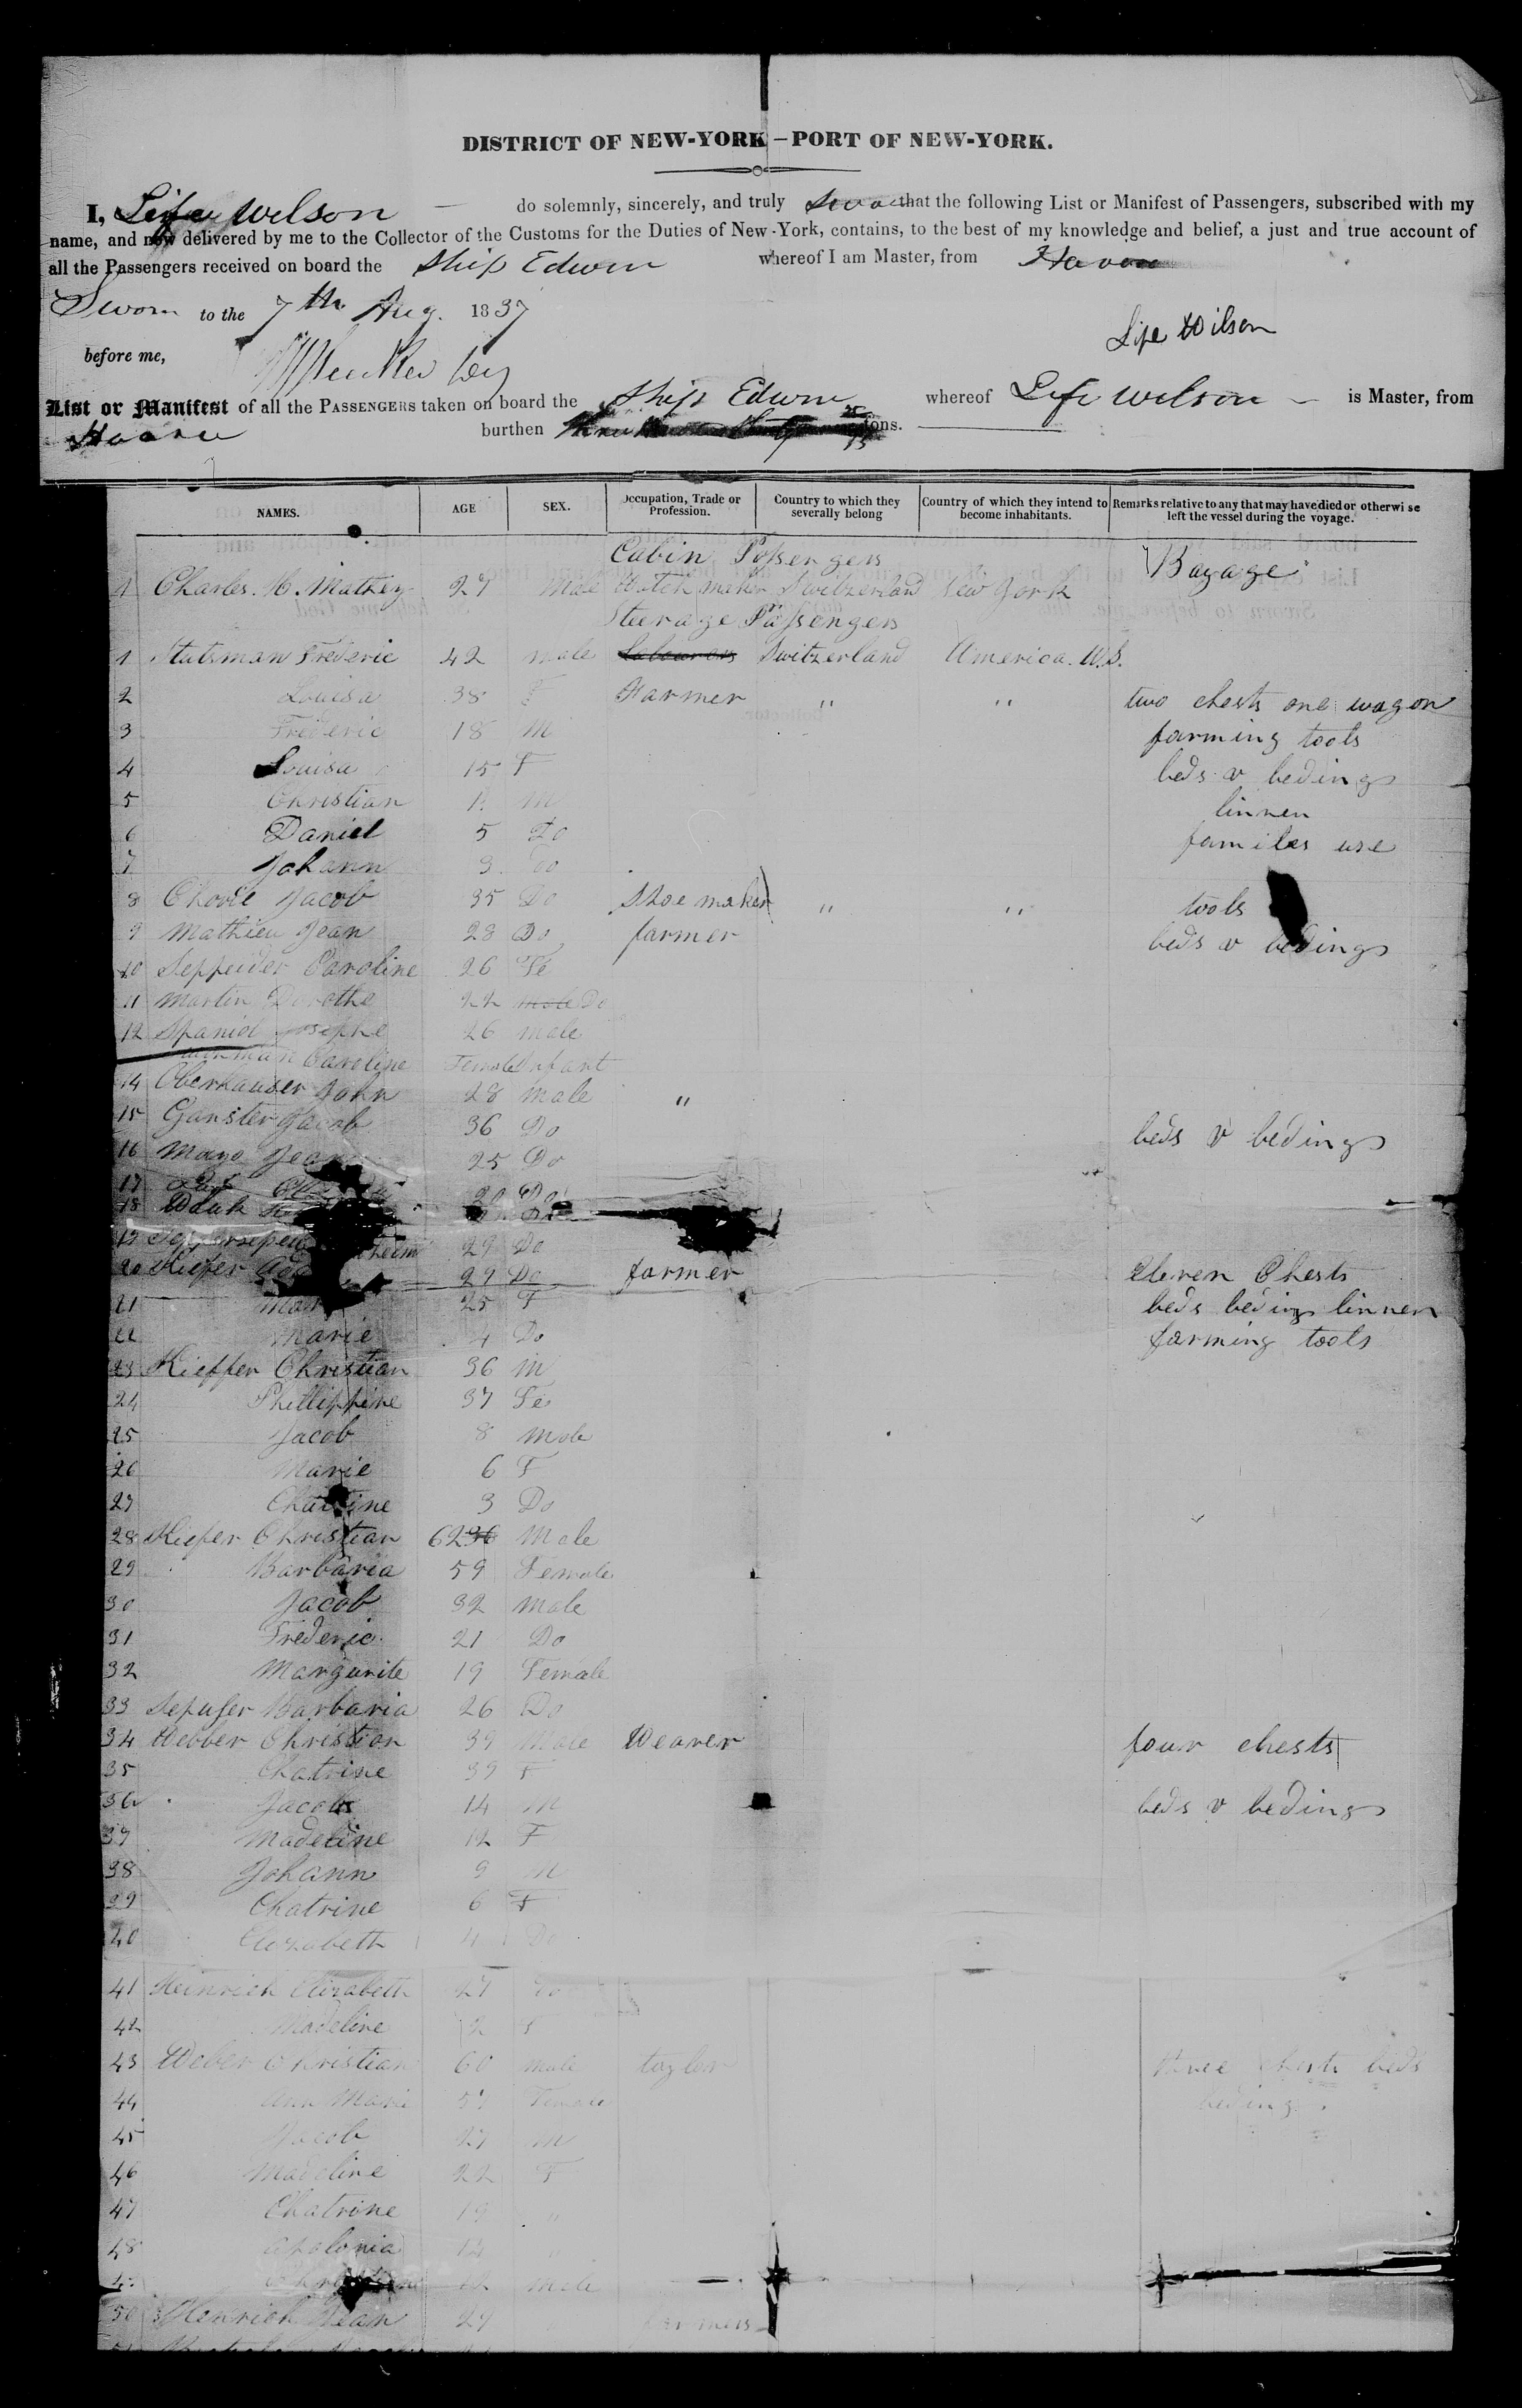 DISTRICT OF NEW-YORK—PORT OF NEW-YORK.
I, Wilson do solemnly, sincerely, and truly that the following List or Manifest of Passengers, subscribed with my
name, and now delivered by me to the Collector of the Customs for the Duties of New-York, contains, to the best of my knowledge and belief, a just and true account of
all the Passengers received on board the Ship Edwin whereof I am Master, from
Sworn to the 7th Aug. 1837
Wilson
before me,
List or Manifest of all the PASSENGERS taken on board the Ship Edwin whereof Wilson is Master, from
burthen tons.
NAMES. AGE SEX. Occupation, Trade or Profession. Country to which they severally belong Country of which they intend to become inhabitants. Remarks relative to any that may have died or otherwise left the vessel during the voyage.
Cabin Passengers Bagage
1 Charles. H. Mathey 27 Male Watch maker Switzerland New York
Steerage Passengers
1 Stutsman Frederic 42 male Labourers Switzerland America. U.S.
2 Louisa 38 F Farmer " " two chests one wagon
3 Frederic 18 M farming tools
4 Louisa 15 F beds & bedings
5 Christian M linnen
6 Daniel 5 Do families use
7 Johann 3 Do
8 Jacob 35 Do Shoe maker " " tools
9 Mathieu Jean 28 Do farmer beds & bedings
10 Caroline 26 Fe
11 Martin Dorothe 22 male Do
12 Spaniol Josephe 26 male
Caroline Female Infant
14 Oberhauser John 28 male "
15 Ganster Jacob 36 Do beds & bedings
16 Mayo Jean 25 Do
17 20 Do
18
19 29 Do
20 Kiefer 27 Do farmer eleven Chests
21 25 F beds bedings linnen
22 Marie 4 Do farming tools
23 Kieffer Christian 36 M
24 Phillippine 37 Fe
25 Jacob 8 Male
26 Marie 6 F
27 Chatrine 3 Do
28 Kiefer Christian 62 36 Male
29 Barbaria 59 Female
30 Jacob 32 male
31 Frederic 21 Do
32 Margurite 19 Female
33 Barbaria 26 Do
34 Webber Christian 39 Male Weaver four chests
35 Chatrine 39 F
36 Jacob 14 M beds & bedings
37 Madeline 12 F
38 Johann 9 M
39 Chatrine 6 F
40 Elizabeth 4 Do
41 Heinrich Elizabeth 27 Do
42 Madeline 2 F
43 Weber Christian 60 male taylor three chests beds
44 Ann Marie 57 Female bedings
45 Jacob 27 M
46 Madeline 22 F
47 Chatrine 19 "
48 Apolonia
male
50 Henrich Jean 27 farmers